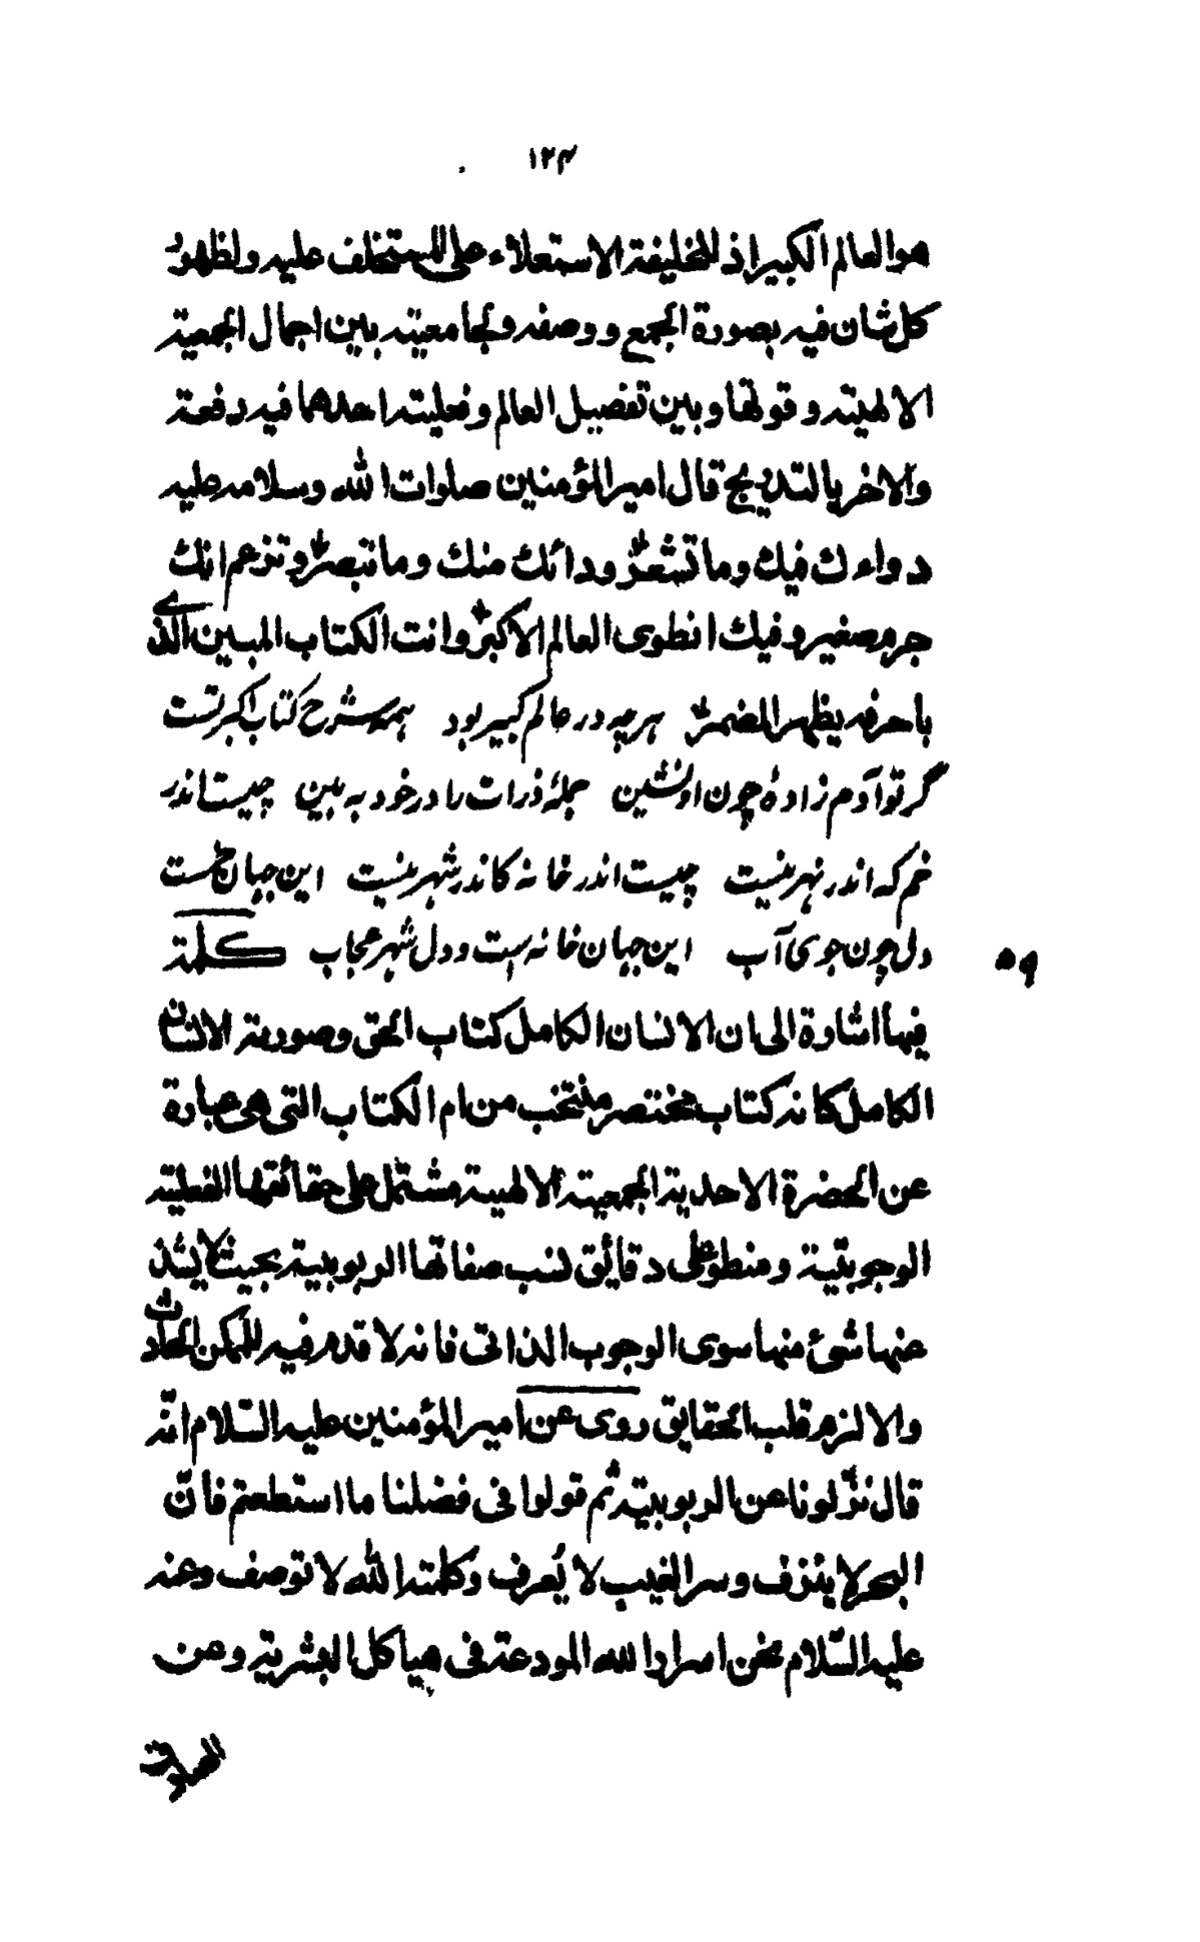 ١٢٤
هو العالم الكبير اذ للخليفة الاستعلاء على المستخلف عليه ولظهور
كل شان فيه بصورة الجمع و وصفه ولجامعيته بين اجمال الجمعية
الالهيته و قوتها وبين تفصيل العالم وفعليته احدهما فيه دفعة
والاخر بالتدريج قال امير المؤمنين صلوات الله وسلامه عليه
دواءك فيك وما تشعر ودائك منك وما تبصر وتزعم انك
جرم صغير وفيك انطوى العالم الاكبر وانت الكتاب المبين الذى
باحرفه يظهر المضمر هرچه در عالم كبير بود همه شرح كتاب اكبر تست
گر تو آدم زادۀ چون او نشين جملۀ ذرات را در خود به بين چيست اندر
خم كه اندر نهر نيست چيست اندر خانه كاندر شهر نيست اين جهان خم ست
دل چون جوى آب اين جهان خانه است و دل شهر عجاب كلمة
٥٩
فيها اشارة الى ان الانسان الكامل كتاب الحق وصورته الانسان
الكامل كانه كتاب مختصر منتخب من ام الكتاب التى هى عبارة
عن الحضرة الاحدية الجمعية الالهية مشتمل على حقائقها الفعلية
الوجوبية ومنطو على دقائق نسب صفاتها الربوبية بحيث لا يشذ
عنها شئ منها سوى الوجوب الذاتى فانه لا قدم فيه للممكن الحادث
والا لزم قلب الحقايق روى عن امير المؤمنين عليه السّلام انّه
قال نزّلونا عن الربوبية ثم قولوا فى فضلنا ما استطعتم فانّ
البحر لا ينزف وسر الغيب لا يُعرف وكلمة الله لا توصف وعنه
عليه السّلام نحن اسرار الله المودعة فى هياكل البشرية وعن
الصادق